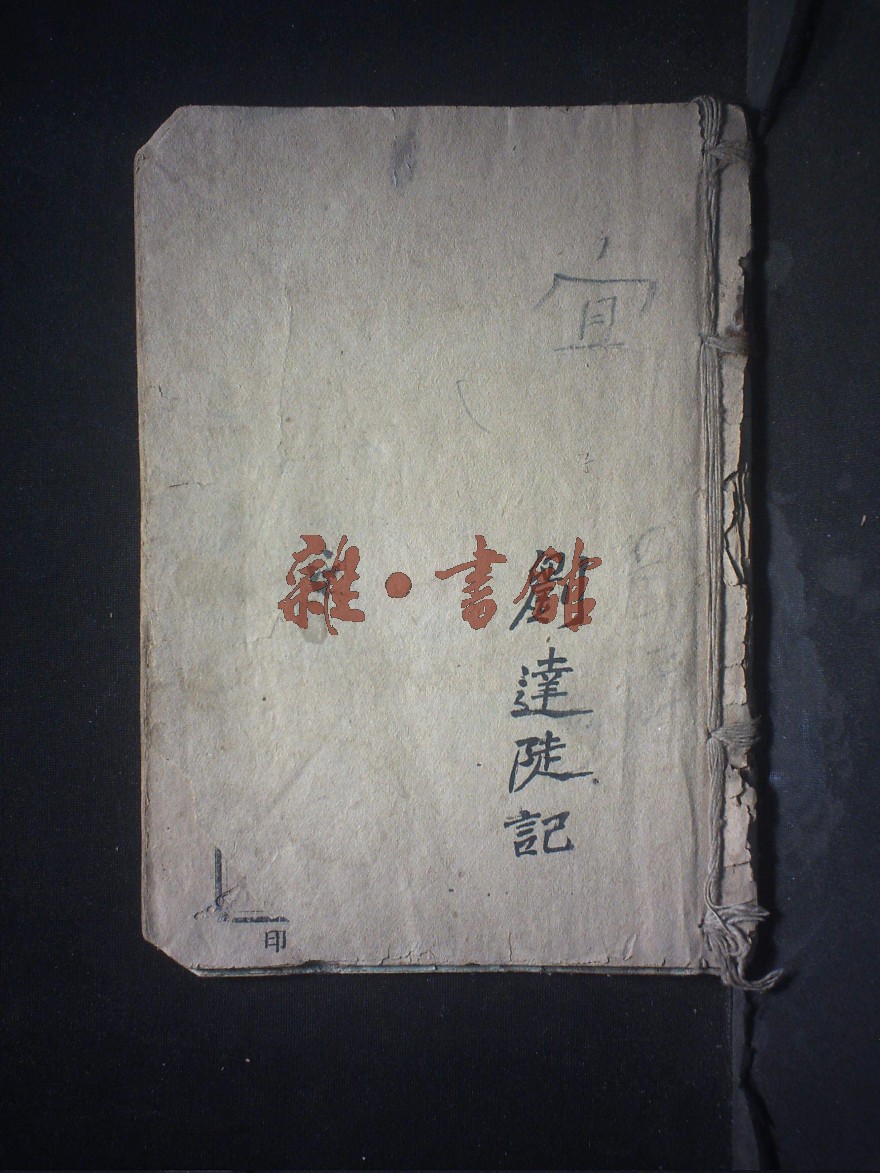 宜
達陡記
雜•書館
印